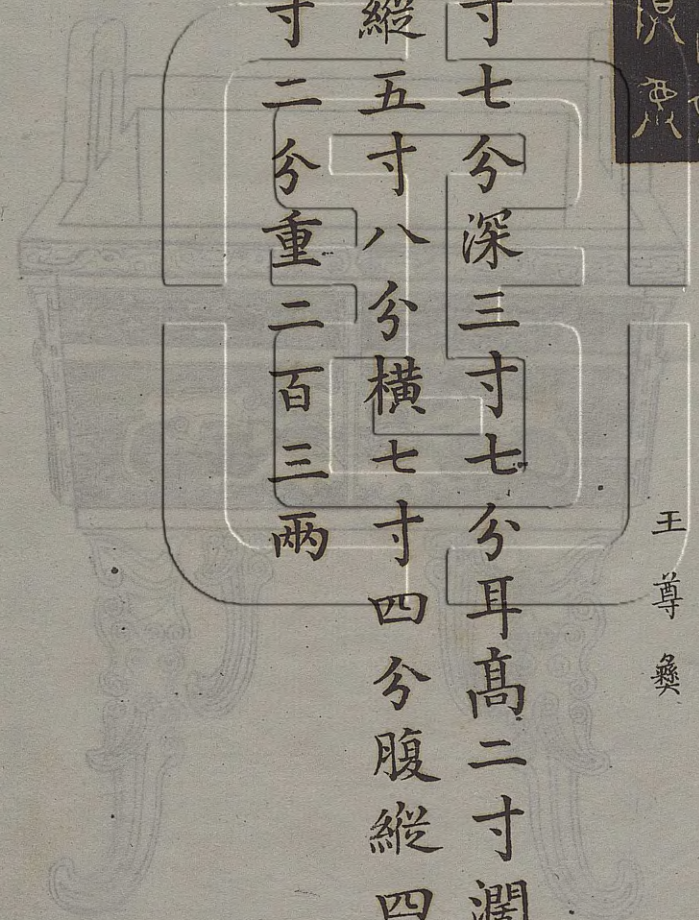 王尊彝
寸七分深三寸七分耳髙二寸濶
縱五寸八分橫七寸四分腹縱四
寸二分重二百三兩